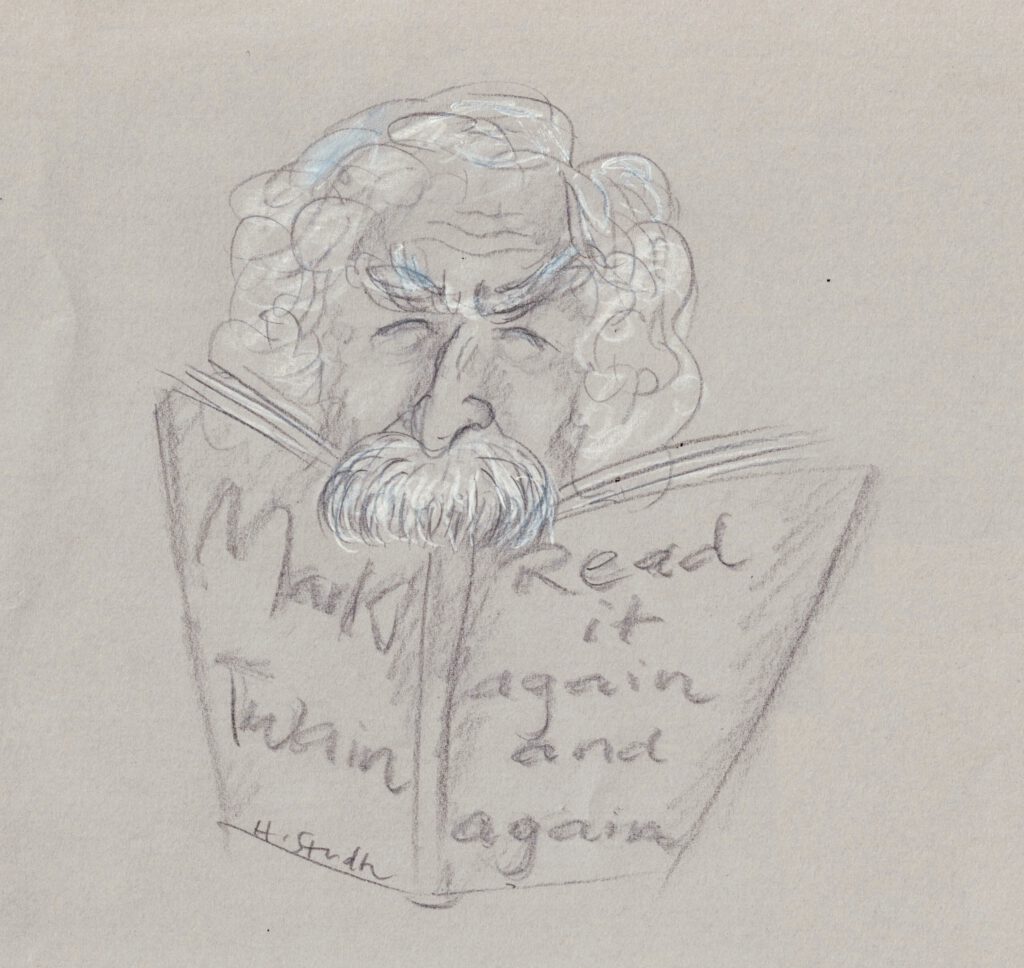 Mark
Twain
Read
it
again
and
again
H.